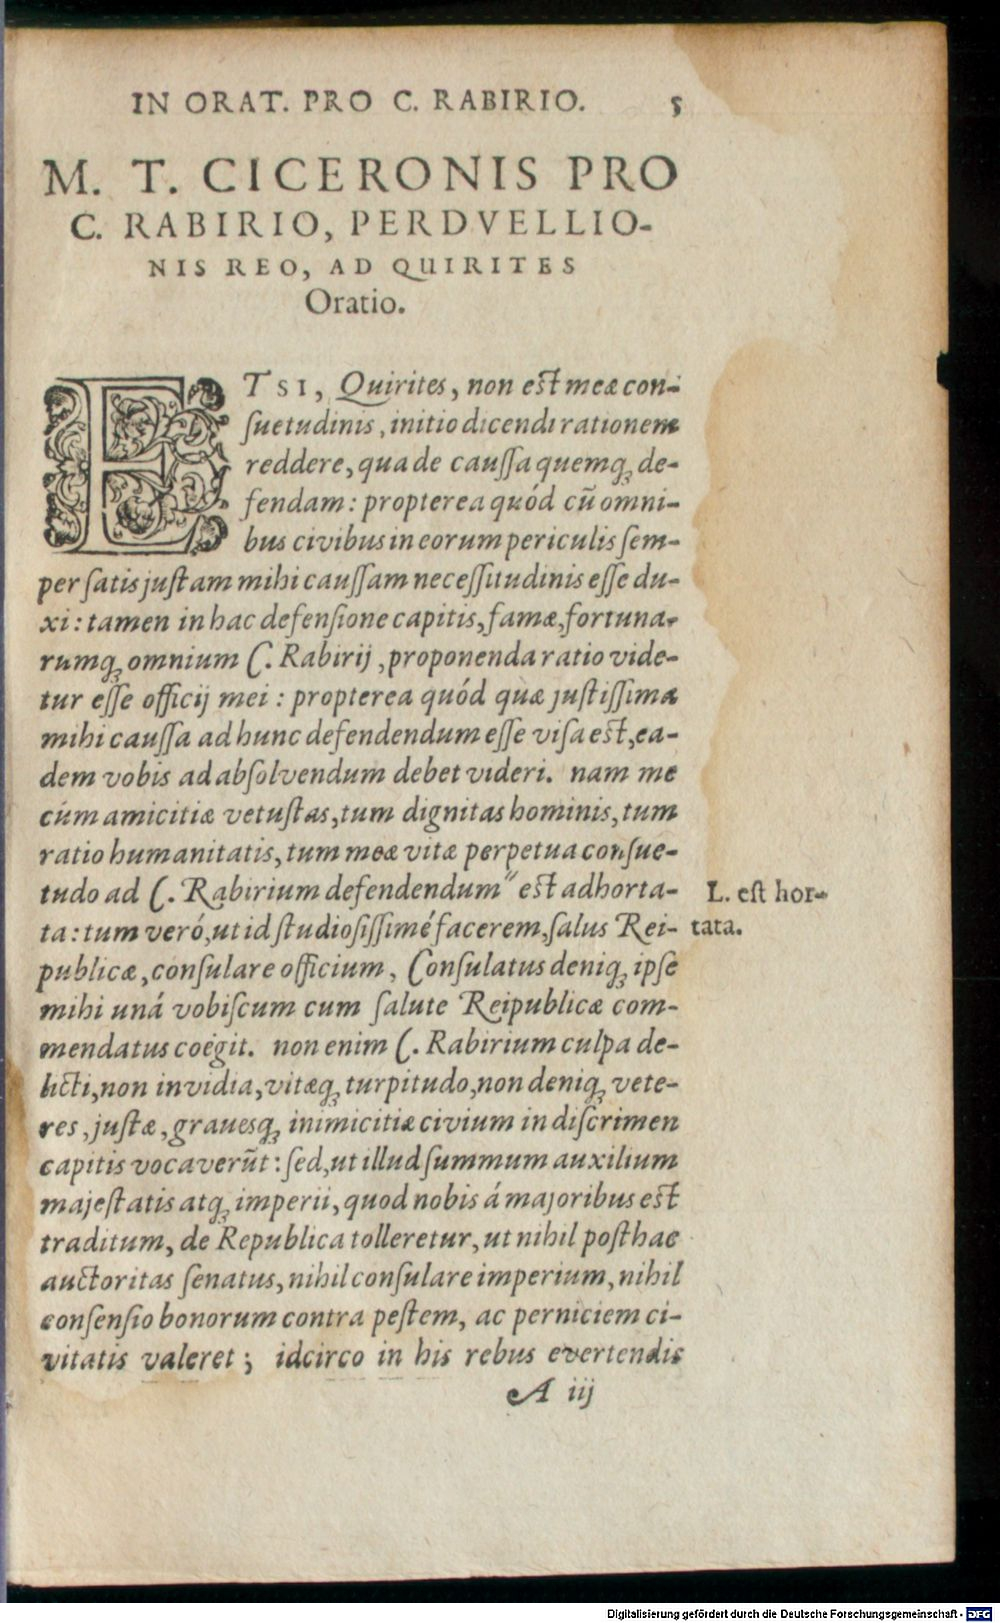 IN ORAT. PRO C. RABIRIO. 5
M. T. CICERONIS PRO
C. RABIRIO, PERDVELLIO-
NIS REO, AD QUIRITES
Oratio.
ETSI, Quirites, non est meæ con-
ſuetudinis, initio dicendi rationem
reddere, qua de cauſſa quemq; de-
fendam: propterea quód cũ omni-
bus civibus in eorum periculis ſem-
per ſatis juſtam mihi cauſſam neceſſitudinis eſſe du-
xi: tamen in hac defenſione capitis, famæ, fortuna-
rumq; omnium C. Rabirij, proponenda ratio vide-
tur eſſe officij mei: propterea quód quæ juſtiſſima
mihi cauſſa ad hunc defendendum eſſe viſa est, ea-
dem vobis ad abſolvendum debet videri. nam me
cúm amicitiæ vetuſtas, tum dignitas hominis, tum
ratio humanitatis, tum meæ vitæ perpetua conſue-
tudo ad C. Rabirium defendendum" est adhorta-
L. est hor-
ta: tum veró, ut id ſtudioſiſſimé facerem, ſalus Rei-
tata.
publicæ, conſulare officium, Conſulatus deniq; ipſe
mihi uná vobiſcum cum ſalute Reipublicæ com-
mendatus coëgit. non enim C. Rabirium culpa de-
licti, non invidia, vitæq; turpitudo, non deniq; vete-
res, juſtæ, grauesq; inimicitiæ civium in diſcrimen
capitis vocaverũt: ſed, ut illud ſummum auxilium
majeſtatis atq; imperii, quod nobis á majoribus est
traditum, de Republica tolleretur, ut nihil poſthac
auctoritas ſenatus, nihil conſulare imperium, nihil
conſenſio bonorum contra peſtem, ac perniciem ci-
vitatis valeret; idcirco in his rebus evertendis
A iij
Digitalisierung gefördert durch die Deutsche Forschungsgemeinschaft - DFG